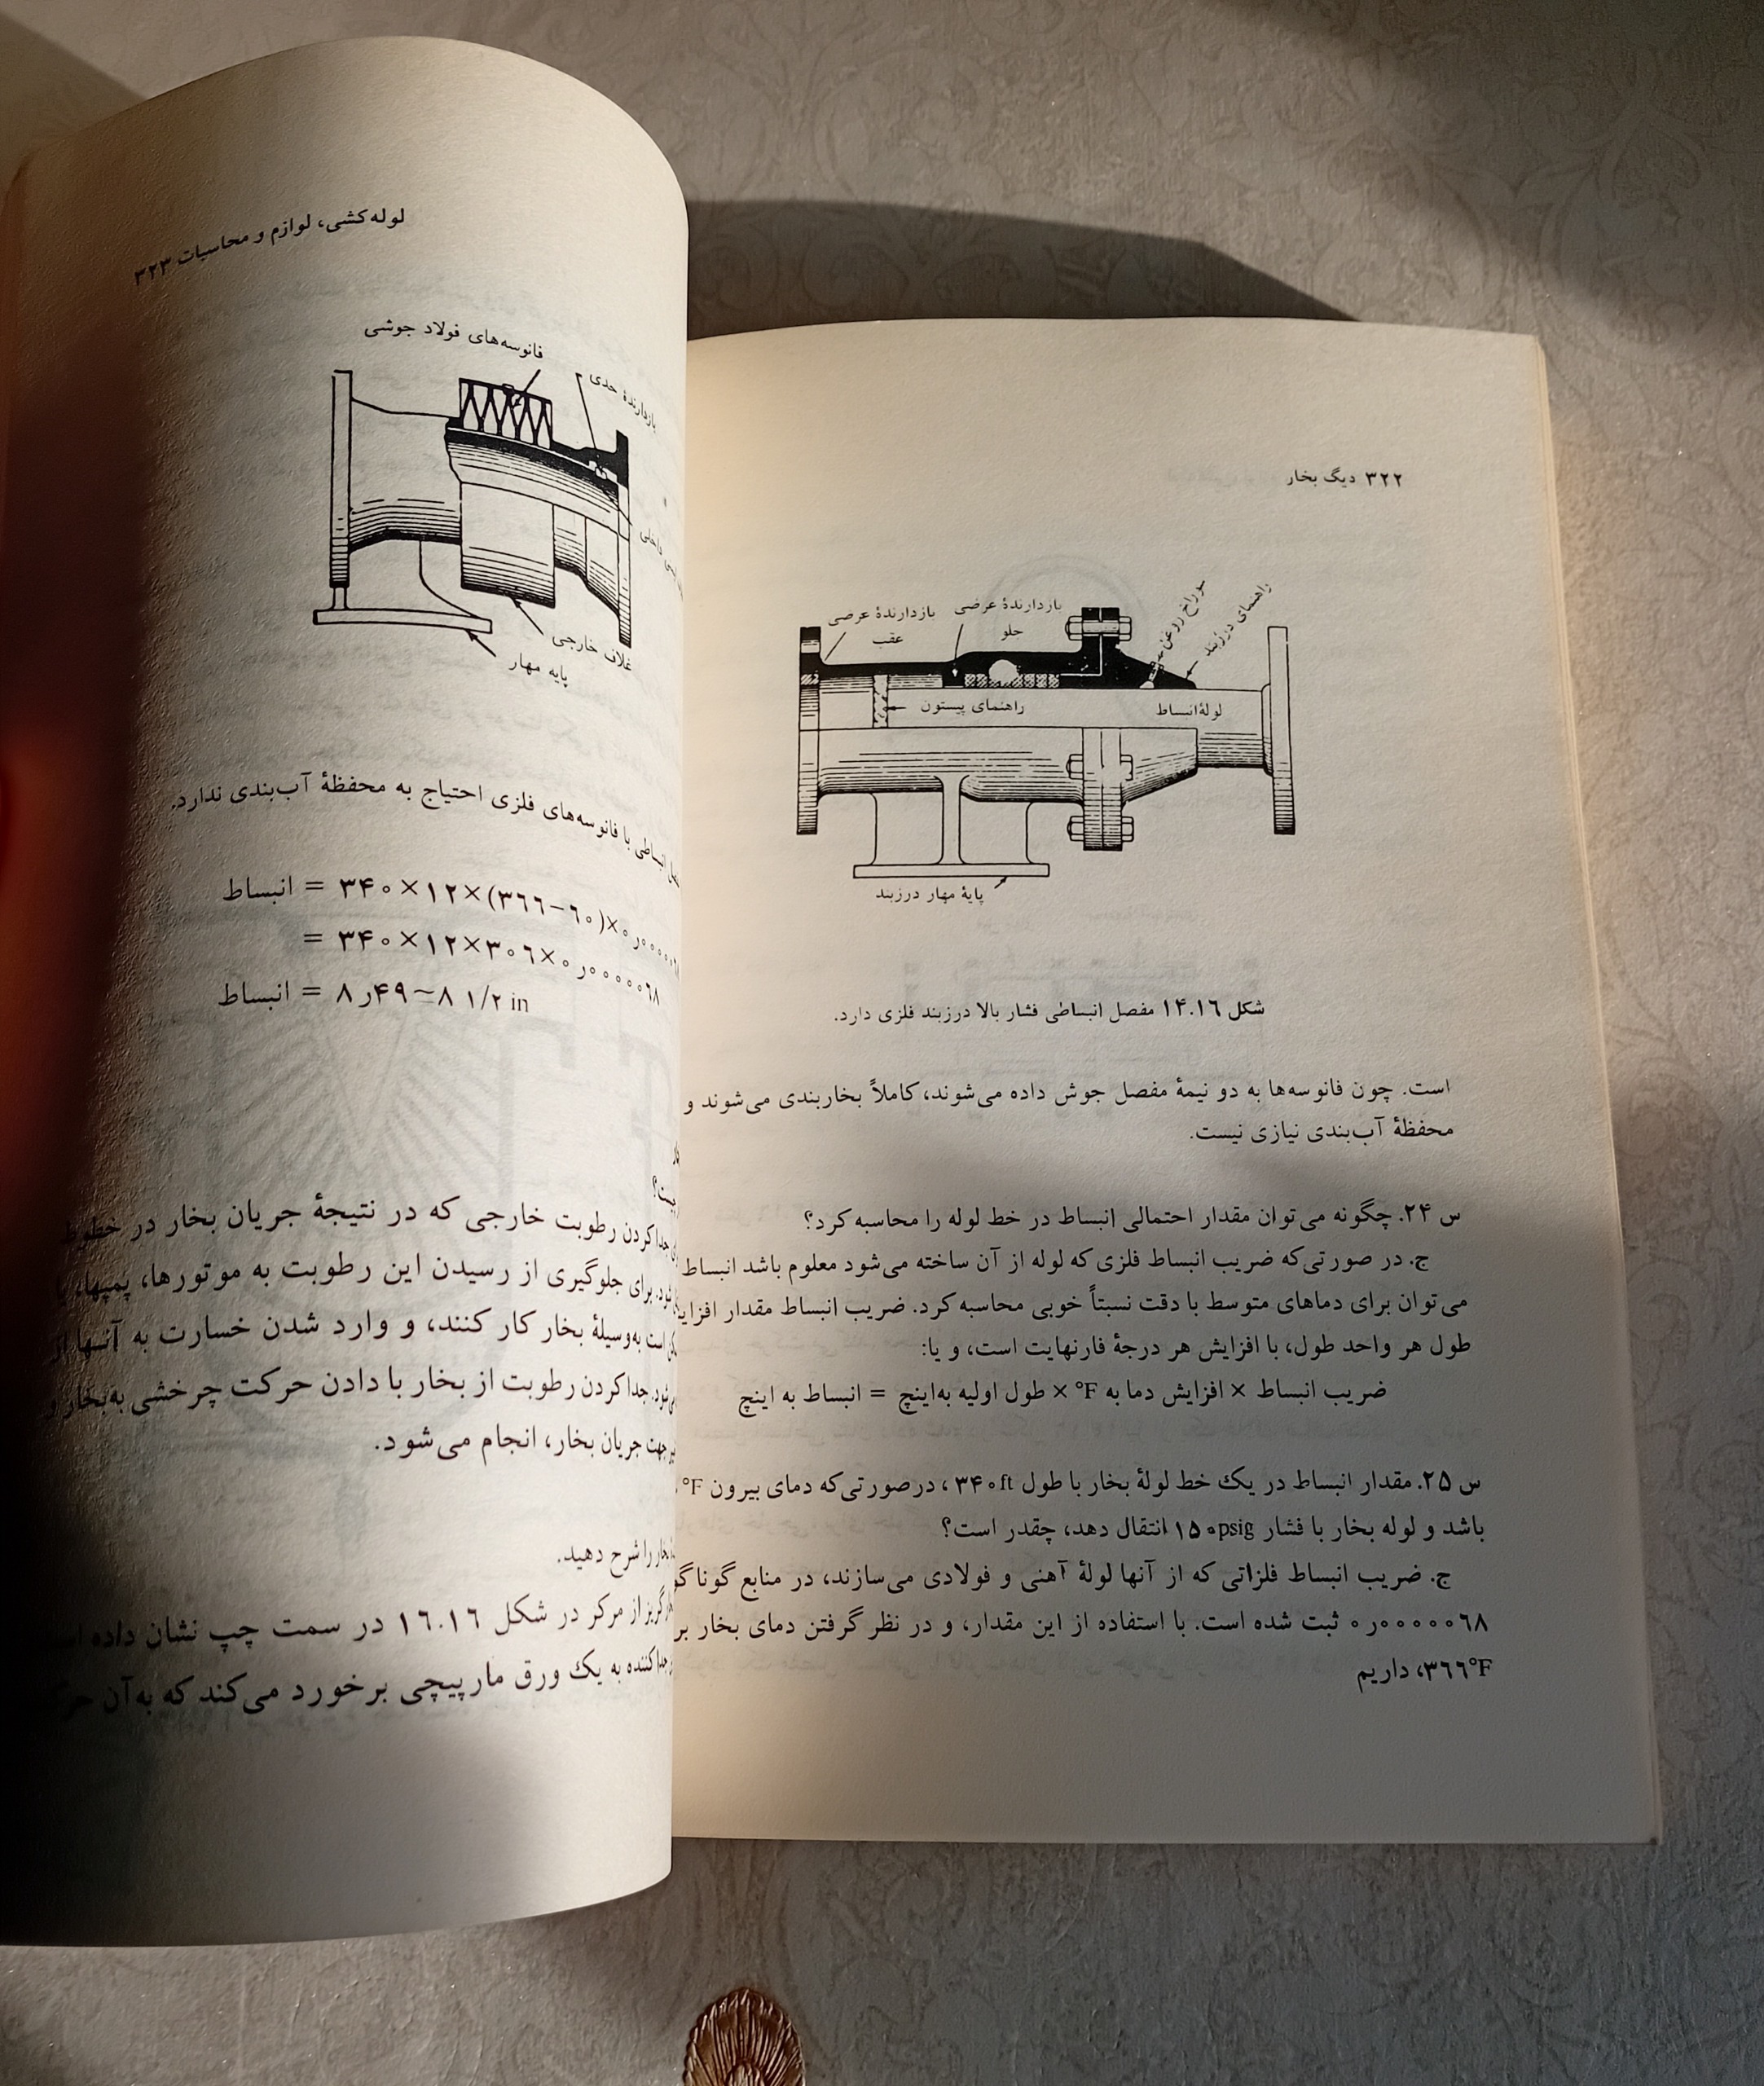 ۳۲۲ دیگ بخار
راهنمای درزبند
سوراخ روغن
بازدارندهٔ عرضی جلو
بازدارندهٔ عرضی عقب
راهنمای پیستون
لولهٔ انبساط
پایهٔ مهار درزبند
شکل ۱۴.۱۶ مفصل انبساطی فشار بالا درزبند فلزی دارد.
است. چون فانوسه‌ها به دو نیمهٔ مفصل جوش داده می‌شوند، کاملاً بخاربندی می‌شوند و
محفظهٔ آب‌بندی نیازی نیست.
س ۲۴. چگونه می‌توان مقدار احتمالی انبساط در خط لوله را محاسبه کرد؟
ج. در صورتی‌که ضریب انبساط فلزی که لوله از آن ساخته می‌شود معلوم باشد انبساط
می‌توان برای دماهای متوسط با دقت نسبتاً خوبی محاسبه کرد. ضریب انبساط مقدار
طول هر واحد طول، با افزایش هر درجهٔ فارنهایت است، و یا:
ضریب انبساط × افزایش دما به °F × طول اولیه به‌اینچ = انبساط به اینچ
س ۲۵. مقدار انبساط در یک خط لولهٔ بخار با طول ۳۴۰ft، درصورتی‌که دمای بیرون °F
باشد و لوله بخار با فشار ۱۵۰psig انتقال دهد، چقدر است؟
ج. ضریب انبساط فلزاتی که از آنها لولهٔ آهنی و فولادی می‌سازند، در منابع
۰ر۰۰۰۰۰۶۸ ثبت شده است. با استفاده از این مقدار، و در نظر گرفتن دمای بخار
۳۶۶°F، داریم
لوله‌کشی، لوازم و محاسبات ۳۲۳
فانوسه‌های فولاد جوشی
بازدارندهٔ حدی
غلاف خارجی
پایه مهار
انبساطی با فانوسه‌های فلزی احتیاج به محفظهٔ آب‌بندی ندارد.
انبساط = ۳۴۰×۱۲×(۳۶۶−۶۰)×۰ر۰۰۰۰۰۶۸
= ۳۴۰×۱۲×۳۰۶×۰ر۰۰۰۰۰۶۸
انبساط = ۸ر۴۹~۸ ۱/۲ in
جداکردن رطوبت خارجی که در نتیجهٔ جریان بخار در خطوط
برای جلوگیری از رسیدن این رطوبت به موتورها، پمپها،
است به‌وسیلهٔ بخار کار کنند، و وارد شدن خسارت به آنها از
جداکردن رطوبت از بخار با دادن حرکت چرخشی به‌بخار و
جهت جریان بخار، انجام می‌شود.
بخار را شرح دهید.
گریز از مرکز در شکل ۱۶.۱۶ در سمت چپ نشان داده
جداکننده به یک ورق مارپیچی برخورد می‌کند که به‌آن